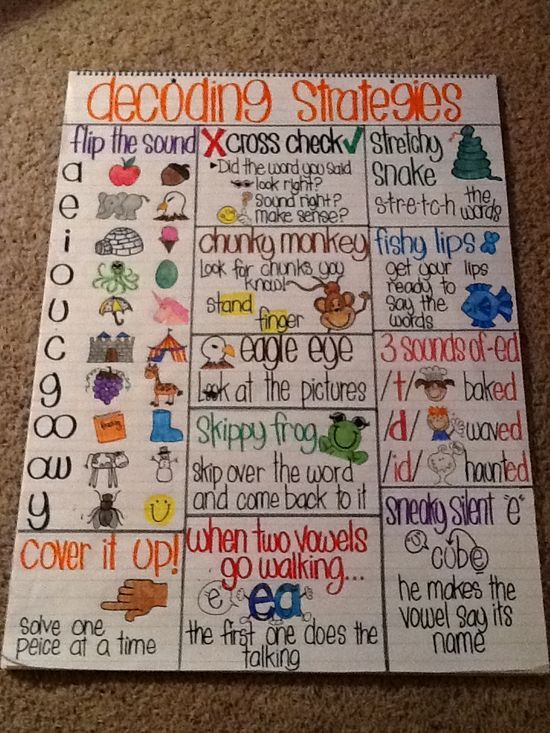 decoding strategies
flip the sound
a
e
i
o
u
c
g
oo
ow
y
X cross check ✓
Did the word you said
look right?
sound right?
make sense?
stretchy
snake
s-t-r-e-t-c-h the
words
chunky monkey
Look for chunks you
know!
stand
finger
fishy lips
get your lips
ready to
say the
words
eagle eye
Look at the pictures
3 sounds of -ed
/t/ baked
/d/ waved
/id/ haunted
skippy frog
skip over the word
and come back to it
sneaky silent "e"
cube
he makes the
vowel say its
name
cover it up!
solve one
peice at a time
when two vowels
go walking...
e
ea
the first one does the
talking